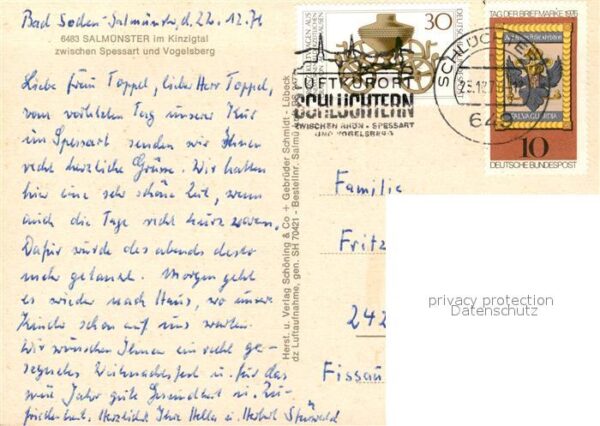 Bad Soden-Salmünster, d. 22.12.76
6483 SALMÜNSTER im Kinzigtal
zwischen Spessart und Vogelsberg
Liebe Frau Toppel, lieber Herr Toppel,
vom vorletzten Tag unserer Kur
im Spessart senden wir Ihnen
recht herzliche Grüße. Wir hatten
hier eine sehr schöne Zeit, wenn
auch die Tage recht kurz waren.
Dafür wurde des abends desto
mehr getanzt. Morgen geht
es wieder nach Haus, wo unsere
Kinder schon auf uns warten.
Wir wünschen Ihnen ein recht ge-
segnetes Weihnachtsfest u. für das
neue Jahr gute Gesundheit u. Zu-
friedenheit. Herzlichst Ihre Hella u. Herbert
Herst. u. Verlag Schöning & Co + Gebrüder Schmidt - Lübeck
dz Luftaufnahme, gen. SH 70421 - Bestellnr. Salmü
30
DEUTSCHE
LUFTKURORT
SCHLÜCHTERN
ZWISCHEN RHÖN - SPESSART
UND VOGELSBERG
SCHLÜCHTERN
649
TAG DER BRIEFMARKE 1976
SALVA GUARDIA
10
DEUTSCHE BUNDESPOST
Familie
Fritz
242
Fissau
privacy protection
Datenschutz